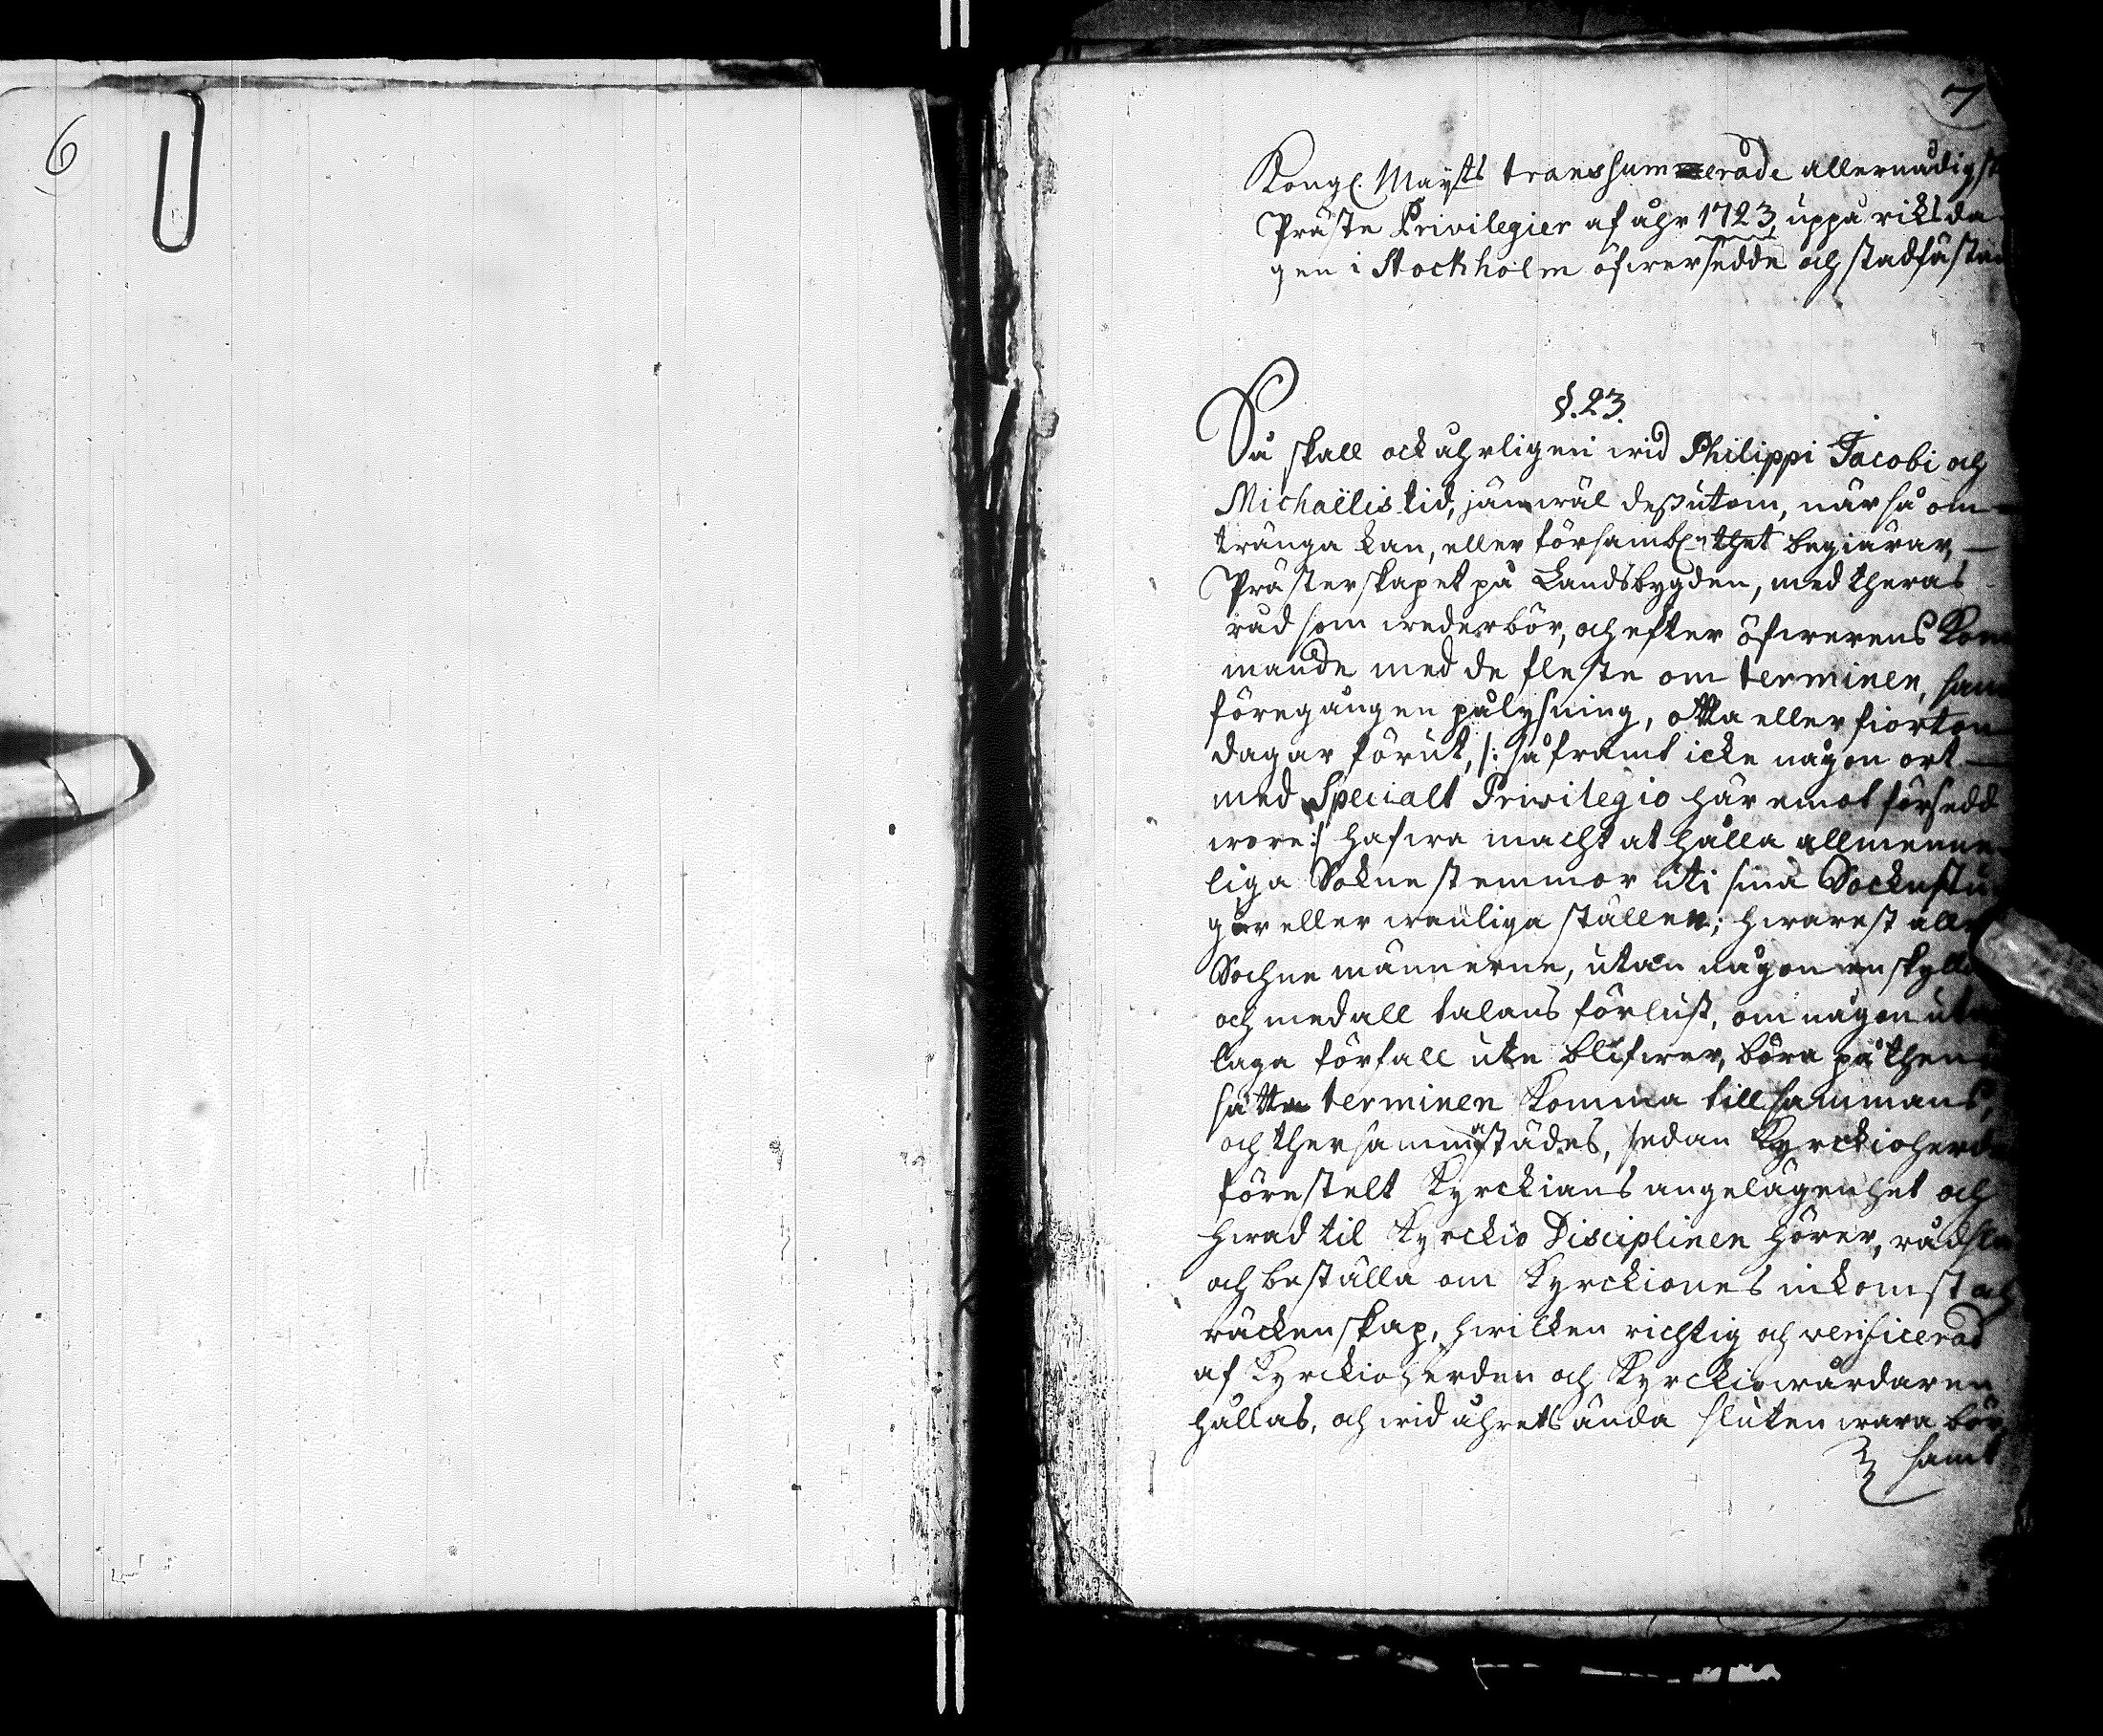 6
7
Kongl. Maÿts transsumerade allernådigste
Präste Privilegier af åhr 1723, uppå riksda
gen i Stockholm öfwersedde och stadfäste
§. 23.
Så skall ock åhrligen wid Philippi Jacobi och
Michaëlis tid, jämwäl dessutom, när så om
tränga kan, eller försambl:n thet begiärar,
Prästerskapet på Landsbygden, med theras
råd som wederbör, och efter öfwerens kom
mande med de fleste om terminen, samt
föregången pålysning, otta eller fiorton
dagar förut, /: så framt icke någon ort
med Specialt Privilegio här emot försedd
wore :/ hafwa macht at hålla allmenne
liga Sokne stemmor uti sina Sockustu
gur eller wanliga ställen; hwarest alle
Sochne männerne, utan någon enskylla
och med all talans förlust, om någon utan
laga förfall ute blifwer, böra på then
satte terminen komma till sammans,
och ther sammastädes, sedan Kyrckioherden
förestelt Kyrckians angelägenhet och
hwad til Kyrckio Disciplinen hörer, rådsla
och beställa om Kyrckiones inkomst och
räckenskap, hwilken richtig och verificerad
af Kyrckioherden och Kyrckiowärdaren
hållas, och wid åhrets ända sluten wara bör,
samt